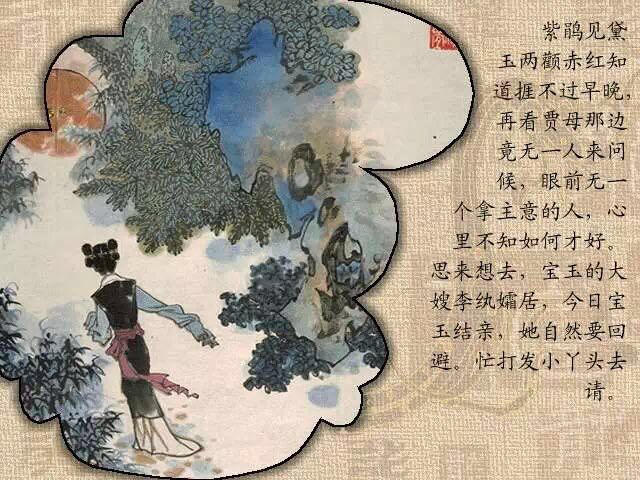 紫鹃见黛
玉两颧赤红知
道捱不过早晚,
再看贾母那边
竟无一人来问
候，眼前无一
个拿主意的人，心
里不知如何才好。
思来想去，宝玉的大
嫂李纨孀居，今日宝
玉结亲，她自然要回
避。忙打发小丫头去
请。